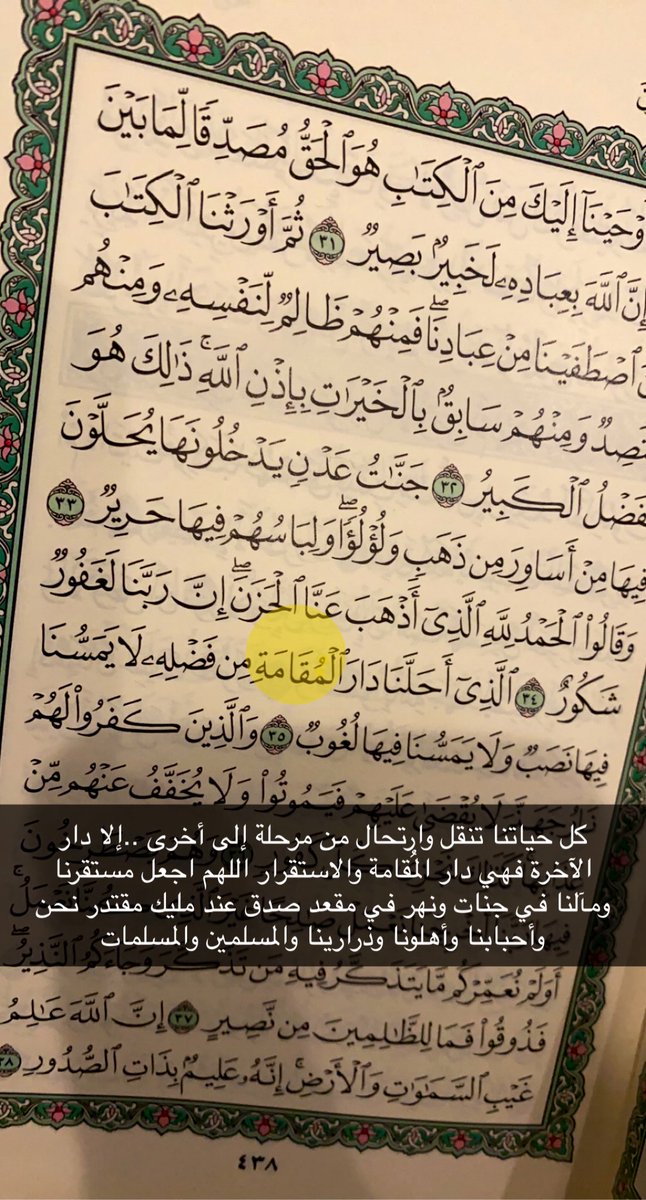 وْحَيْنَآ إِلَيْكَ مِنَ ٱلْكِتَٰبِ هُوَ ٱلْحَقُّ مُصَدِّقًا لِّمَا بَيْنَ
إِنَّ ٱللَّهَ بِعِبَادِهِۦ لَخَبِيرٌۢ بَصِيرٌ ٣١ ثُمَّ أَوْرَثْنَا ٱلْكِتَٰبَ
ٱصْطَفَيْنَا مِنْ عِبَادِنَا ۖ فَمِنْهُمْ ظَالِمٌ لِّنَفْسِهِۦ وَمِنْهُم
تَصِدٌ وَمِنْهُمْ سَابِقٌۢ بِٱلْخَيْرَٰتِ بِإِذْنِ ٱللَّهِ ۚ ذَٰلِكَ هُوَ
فَضْلُ ٱلْكَبِيرُ ٣٢ جَنَّٰتُ عَدْنٍ يَدْخُلُونَهَا يُحَلَّوْنَ
فِيهَا مِنْ أَسَاوِرَ مِن ذَهَبٍ وَلُؤْلُؤًا ۖ وَلِبَاسُهُمْ فِيهَا حَرِيرٌ ٣٣
وَقَالُوا۟ ٱلْحَمْدُ لِلَّهِ ٱلَّذِىٓ أَذْهَبَ عَنَّا ٱلْحَزَنَ ۖ إِنَّ رَبَّنَا لَغَفُورٌ
شَكُورٌ ٣٤ ٱلَّذِىٓ أَحَلَّنَا دَارَ ٱلْمُقَامَةِ مِن فَضْلِهِۦ لَا يَمَسُّنَا
فِيهَا نَصَبٌ وَلَا يَمَسُّنَا فِيهَا لُغُوبٌ ٣٥ وَٱلَّذِينَ كَفَرُوا۟ لَهُمْ
نَارُ جَهَنَّمَ لَا يُقْضَىٰ عَلَيْهِمْ فَيَمُوتُوا۟ وَلَا يُخَفَّفُ عَنْهُم مِّنْ
كل حياتنا تنقل وارتحال من مرحلة إلى أخرى ..إلا دار
الآخرة فهي دار المُقامة والاستقرار اللهم اجعل مستقرنا
ومآلنا في جنات ونهر في مقعد صدق عند مليك مقتدر نحن
وأحبابنا وأهلونا وذرارينا والمسلمين والمسلمات
أَوَلَمْ نُعَمِّرْكُم مَّا يَتَذَكَّرُ فِيهِ مَن تَذَكَّرَ وَجَآءَكُمُ ٱلنَّذِيرُ ۖ
فَذُوقُوا۟ فَمَا لِلظَّٰلِمِينَ مِن نَّصِيرٍ ٣٧ إِنَّ ٱللَّهَ عَٰلِمُ
غَيْبِ ٱلسَّمَٰوَٰتِ وَٱلْأَرْضِ ۚ إِنَّهُۥ عَلِيمٌۢ بِذَاتِ ٱلصُّدُورِ ٣٨
٤٣٨